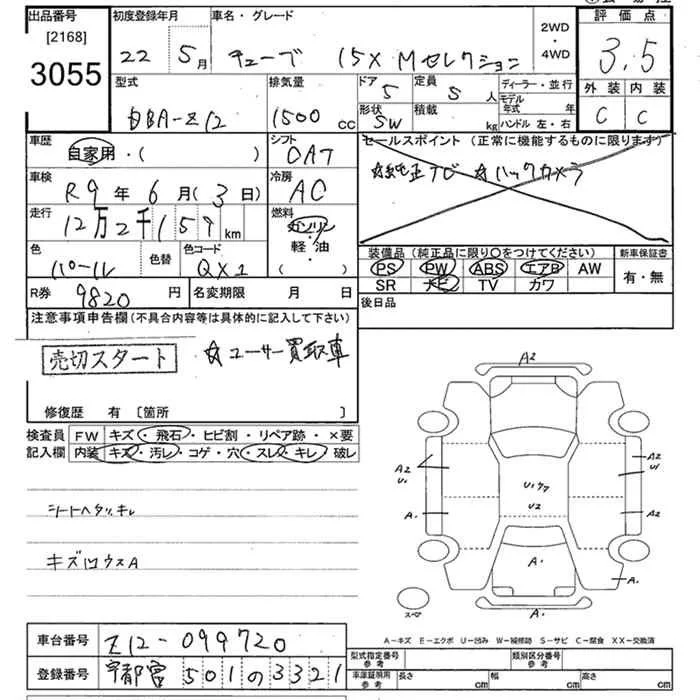 出品番号 [2168] 3055
初度登録年月 22 5月
車名・グレード キューブ 15X Mセレクション
2WD・4WD
評価点 3.5
外装 内装
C C
型式 DBA-Z12
排気量 1500 cc
ドア 5
定員 5 人
形状 SW
積載 kg
ディーラー・並行
モデル年式 年
ハンドル 左・右
車歴 自家用・( )
シフト CAT
セールスポイント (正常に機能するものに限ります)
☆純正ナビ ☆バックカメラ
車検 R9年6月(3日)
冷房 AC
走行 12万2千159km
燃料 ガソリン・軽・油 ( )
色 パール 色替
色コード QX1
装備品 (純正品に限り〇をつけてください)
PS PW ABS エアB AW
SR ナビ TV カワ
新車保証書 有・無
R券 9820円
名変期限 月 日
後日品
注意事項申告欄 (不具合内容等は具体的に記入して下さい)
売切スタート ☆ユーザー買取車
修復歴 有 〔箇所 〕
検査員記入欄
FW キズ・飛石・ヒビ割・リペア跡・×要
内装 キズ・汚レ・コゲ・穴・スレ・キレ・破レ
シートヘタリ、キレ
キズ凹ウスA
A2
A2 U1
A2 U1
A.
A2
U2
A.
A.
A.
スペア
A-キズ E-エクボ U-凹み W-補修跡 S-サビ C-腐食 XX-交換済
車台番号 Z12-099720
登録番号 宇都宮501の3321
型式指定番号 参考
類別区分番号 参考
車庫証明用 参考 長さ cm 幅 cm 高さ cm